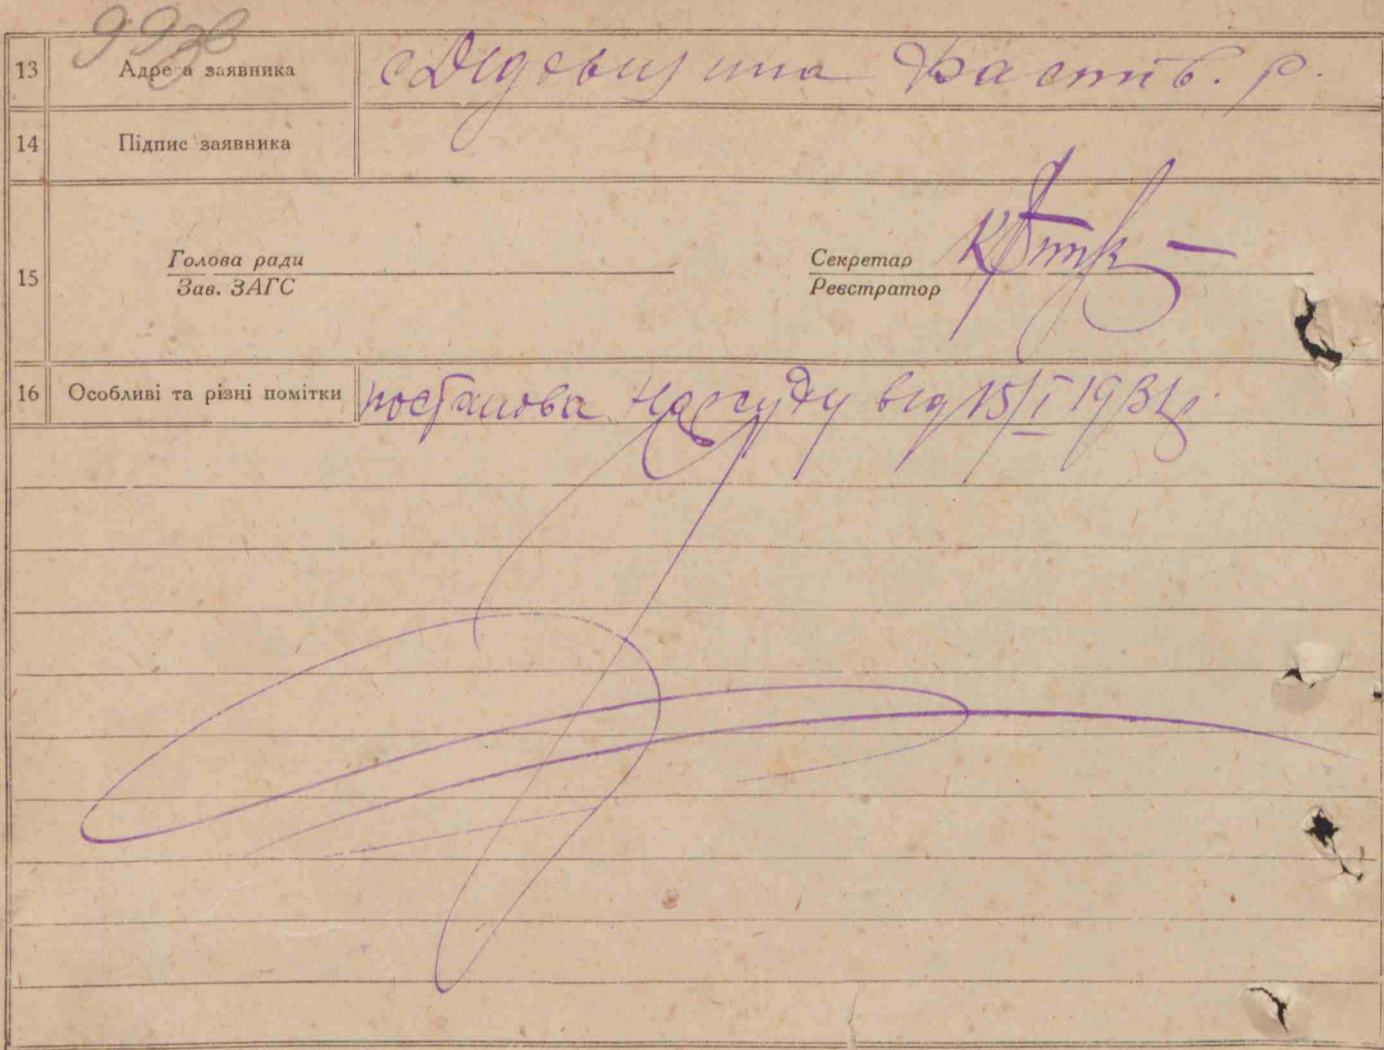 993в
13 Адреса заявника с Дідовщина Фастів. р.
14 Підпис заявника
15 Голова ради Секретар
Зав. ЗАГС Реєстратор
16 Особливі та різні помітки постанова Нарсуду від 15/I 193